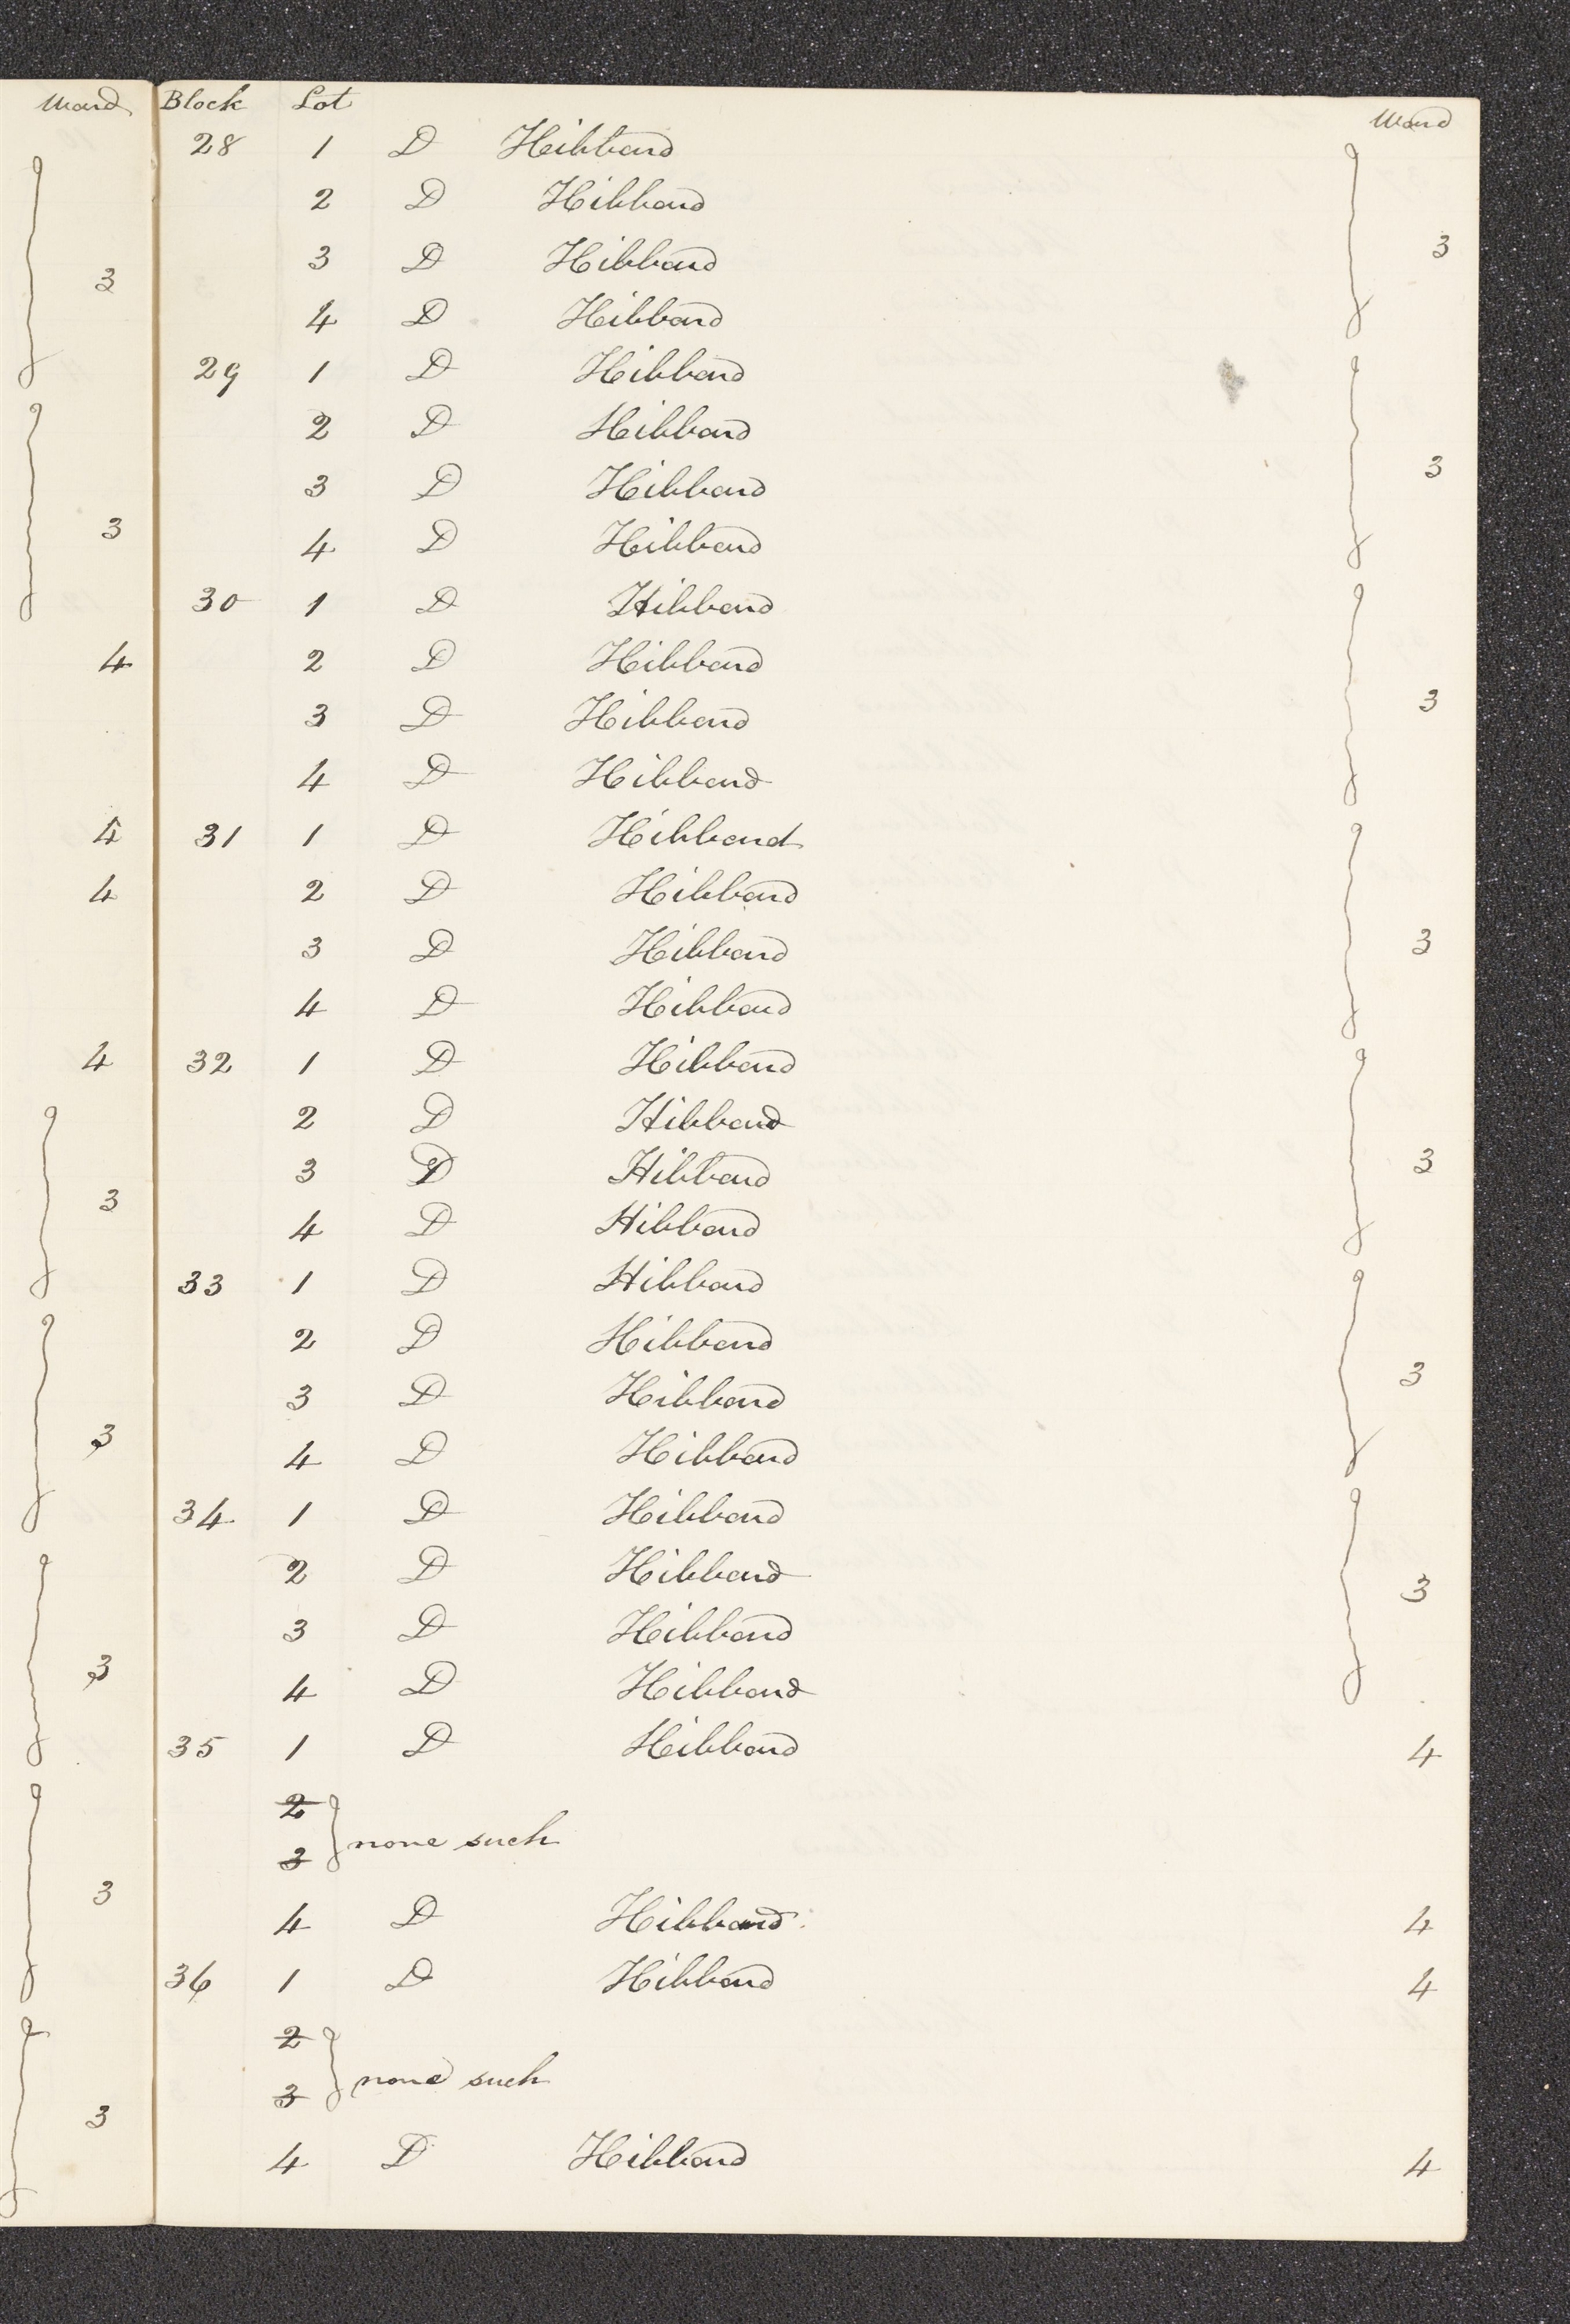 Ward
3
3
4
4
4
4
3
3
3
3
3
Block Lot Ward
28 1 D Hibbard
2 D Hibbard
3 D Hibbard 3
4 D Hibbard
29 1 D Hibbard
2 D Hibbard
3 D Hibbard 3
4 D Hibbard
30 1 D Hibbard
2 D Hibbard
3 D Hibbard 3
4 D Hibbard
31 1 D Hibbard
2 D Hibbard
3 D Hibbard 3
4 D Hibbard
32 1 D Hibbard
2 D Hibbard
3 D Hibbard 3
4 D Hibbard
33 1 D Hibbard
2 D Hibbard
3 D Hibbard 3
4 D Hibbard
34 1 D Hibbard
2 D Hibbard
3 D Hibbard 3
4 D Hibbard
35 1 D Hibbard 4
2
none such
3
4 D Hibbard 4
36 1 D Hibbard 4
2
none such
3
4 D Hibbard 4